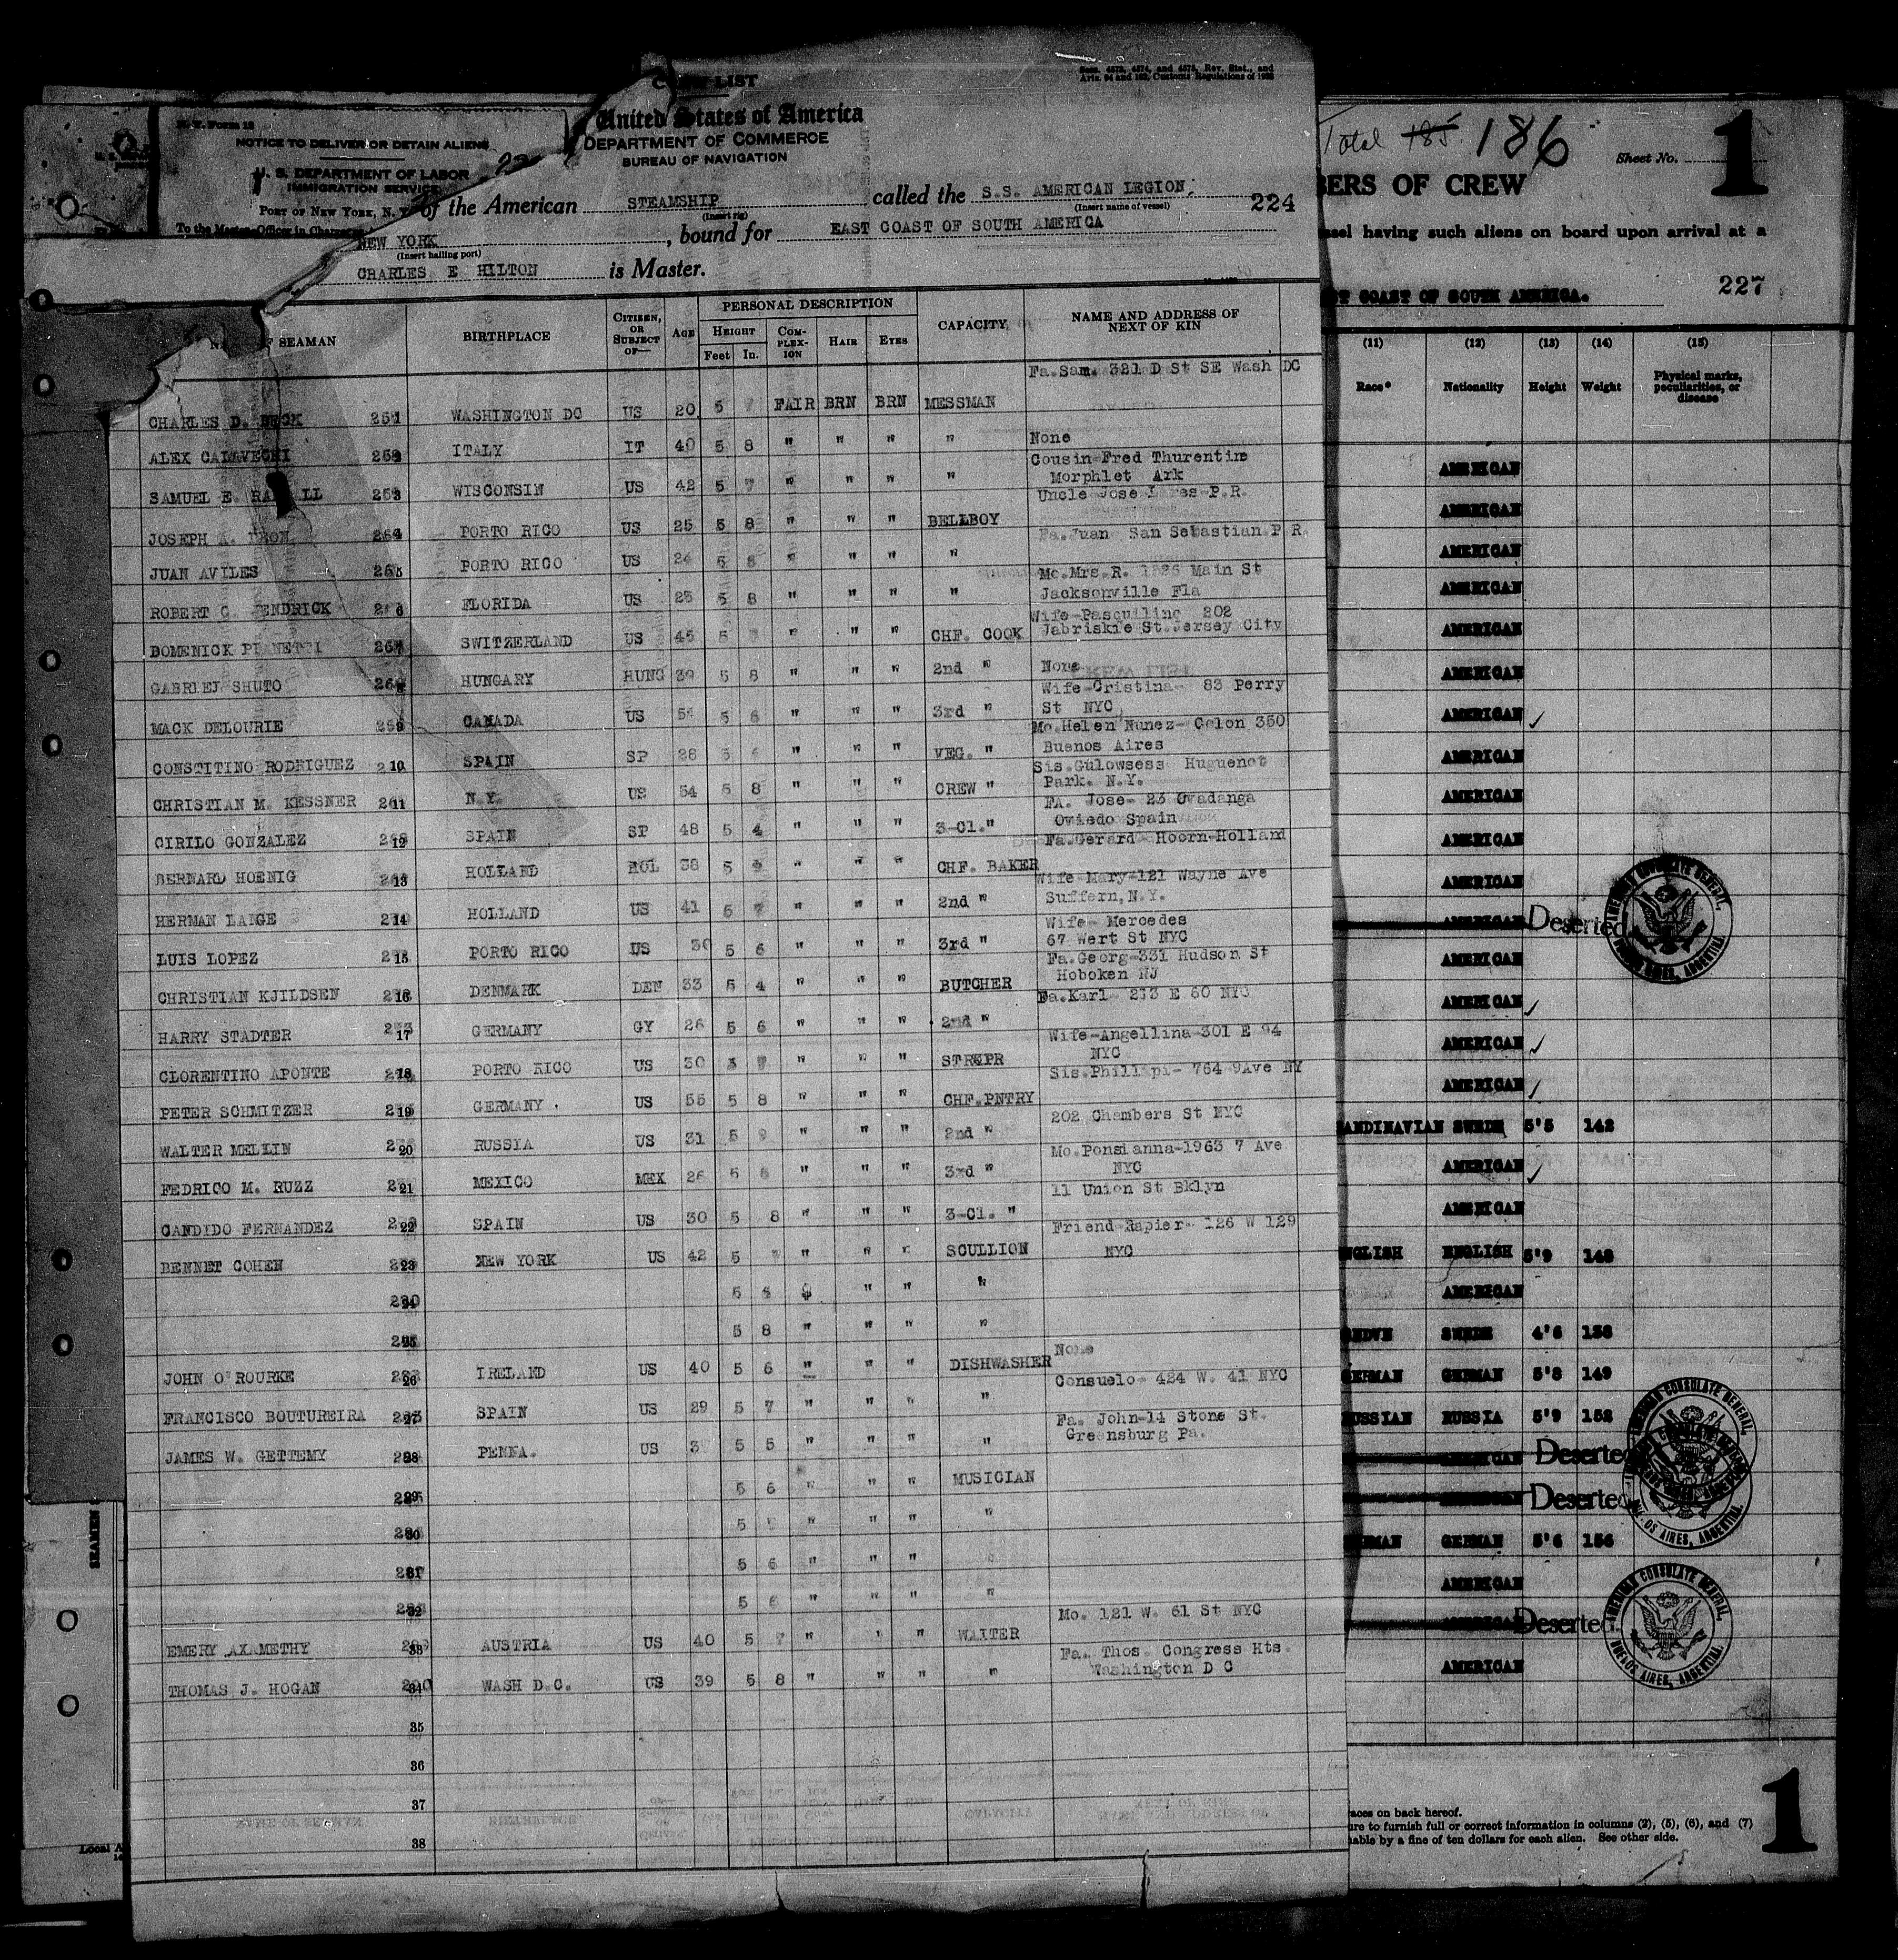 CREW LIST
Secs. 4573, 4574, and 4575, Rev. Stat., and
Arts. 94 and 162, Customs Regulations of 1923
N. Y. Form 18
NOTICE TO DELIVER OR DETAIN ALIENS
U. S. DEPARTMENT OF LABOR
IMMIGRATION SERVICE
PORT OF NEW YORK, N. Y.
United States of America
DEPARTMENT OF COMMERCE
BUREAU OF NAVIGATION
of the American STEAMSHIP called the S.S. AMERICAN LEGION 224
(Insert rig) (Insert name of vessel)
NEW YORK, bound for EAST COAST OF SOUTH AMERICA
(Insert hailing port)
CHARLES E HILTON is Master.
OF SEAMAN BIRTHPLACE CITIZEN, OR SUBJECT OF— AGE PERSONAL DESCRIPTION CAPACITY NAME AND ADDRESS OF NEXT OF KIN
HEIGHT COMPLEXION HAIR EYES
Feet In.
Fa. Sam. 321 D St SE Wash DC
CHARLES D. BECK 1 WASHINGTON DC US 20 5 7 FAIR BRN BRN MESSMAN
ALEX CALAVECHI 2 ITALY IT 40 5 8 " " " " None
Cousin Fred Thurentine
SAMUEL E. 3 WISCONSIN US 42 5 7 " " " " Morphlet Ark
Uncle Jose P.R.
JOSEPH 4 PORTO RICO US 25 5 8 " " " BELLBOY
Fa. Juan San Sebastian P R
JUAN AVILES 5 PORTO RICO US 24 5 8 " " " "
Mo. Mrs. R. Main St
ROBERT C. 6 FLORIDA US 25 5 8 " " " " Jacksonville Fla
Wife Pasquiling 202
DOMENICK 7 SWITZERLAND US 45 5 7 " " " CHF. COOK Jabriskie St. Jersey City
GABRIEJ SHUTO HUNGARY HUNG 39 5 8 " " " 2nd " None
Wife-Cristina- 83 Perry
MACK DELOURIE 9 CANADA US 5 6 " " " 3rd " St NYC
Mo. Helen Nunez- Colon 350
CONSTITINO RODRIGUEZ 10 SPAIN SP 28 5 6 " " " VEG. " Buenos Aires
Sis. Gulowsess Huguenot
CHRISTIAN M. KESSNER 11 N.Y. US 54 5 8 " " " CREW " Park. N.Y.
FA. Jose- 23 Uvadanga
CIRILO GONZALEZ 12 SPAIN SP 48 5 4 " " " 3-Cl." Oviedo Spain
Fa. Gerard- Hoorn-Holland
BERNARD HOENIG 13 HOLLAND HOL 38 5 " " " CHF. BAKER
Wife Mary-121 Wayne Ave
HERMAN LANGE 14 HOLLAND US 41 5 7 " " " 2nd " Suffern, N.Y.
Wife- Mercedes
LUIS LOPEZ 15 PORTO RICO US 30 5 6 " " " 3rd " 67 Wert St NYC
Fa. Georg-331 Hudson St
CHRISTIAN KJILDSEN 16 DENMARK DEN 33 5 4 " " " BUTCHER Hoboken NJ
Fa. Karl- 213 E 60 NYC
HARRY STADTER 17 GERMANY GY 26 5 6 " " " 2nd "
Wife-Angellina-301 E 94
CLORENTINO APONTE 18 PORTO RICO US 30 5 7 " " " STREPR NYC
Sis. Phillipi- 764 9Ave NY
PETER SCHMITZER 19 GERMANY US 55 5 8 " " " CHF. PNTRY
202 Chambers St NYC
WALTER MELLIN 20 RUSSIA US 31 5 9 " " " 2nd "
Mo. Ponsianna-1963 7 Ave
FEDRICO M. RUZZ 21 MEXICO MEX 26 5 6 " " " 3rd " NYC
11 Union St Bklyn
CANDIDO FERNANDEZ 22 SPAIN US 30 5 8 " " " 3-Cl. "
Friend Rapier- 126 W 129
BENNET COHEN 23 NEW YORK US 42 5 7 " " " SCULLION NYC
24 5 " " "
25 5 8 " " " "
None
JOHN O'ROURKE 26 IRELAND US 40 5 6 " " " DISHWASHER
Consuelo- 424 W. 41 NYC
FRANCISCO BOUTUREIRA 27 SPAIN US 29 5 7 " " " "
Fa. John-14 Stone St.
JAMES W. GETTEMY 28 PENNA. US 5 5 " " Greensburg Pa.
29 5 6 " " " MUSICIAN
30 5 " " " "
31 5 6 " " "
32 5 6 " " " "
Mo. 121 W. 61 St NYC
EMERY AXAMETHY 33 AUSTRIA US 40 5 7 " " " WAITER
Fa. Thos. Congress Hts.
THOMAS J. HOGAN 34 WASH D.C. US 39 5 8 " " " " Washington D C
35
36
37
38
SEAMEN
Total 185 186 Sheet No. 1
BERS OF CREW
ssel having such aliens on board upon arrival at a
T COAST OF SOUTH AMERICA. 227
(11) (12) (13) (14) (15)
Race* Nationality Height Weight Physical marks, peculiarities, or disease
AMERICAN
AMERICAN
AMERICAN
AMERICAN
AMERICAN
AMERICAN
AMERICAN ✓
AMERICAN
AMERICAN
AMERICAN
AMERICAN
AMERICAN Deserted
AMERICAN CONSULATE GENERAL, BUENOS AIRES, ARGENTINA.
AMERICAN
AMERICAN ✓
AMERICAN ✓
AMERICAN ✓
ANDINAVIAN SWEDE 5'5 142
AMERICAN ✓
AMERICAN
NGLISH ENGLISH 5'9 148
AMERICAN
SWEDE 4'6 138
ERMAN GERMAN 5'8 149
USSIAN RUSSIA 5'9 152
AMERICAN Deserted
Deserted
RMAN GERMAN 5'6 156
AMERICAN
AMERICAN Deserted
AMERICAN CONSULATE GENERAL, BUENOS AIRES, ARGENTINA.
AMERICAN
races on back hereof.
ure to furnish full or correct information in columns (2), (5), (6), and (7)
able by a fine of ten dollars for each alien. See other side.
1